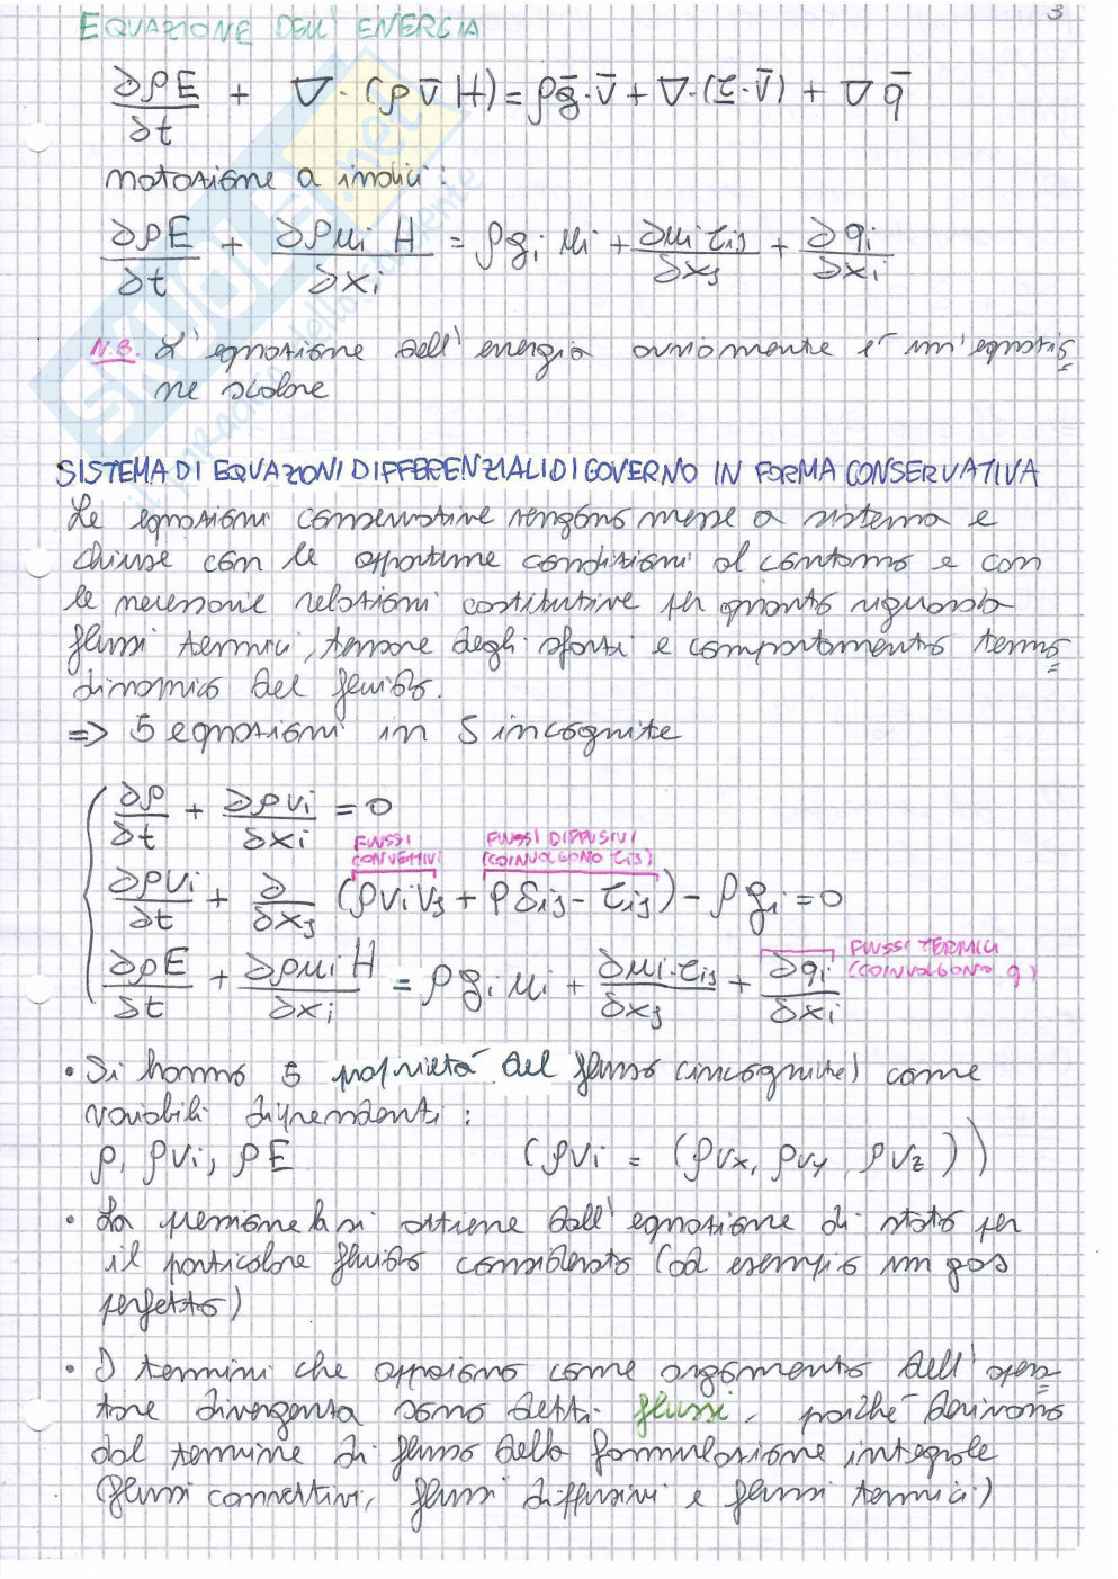 3
EQUAZIONE DELL' ENERGIA
∂ρE/∂t + ∇·(ρ v̄ H) = ρḡ·v̄ + ∇·(τ·v̄) + ∇ q̄
notazione a indici:
∂ρE/∂t + ∂ρui H/∂xi = ρgi ui + ∂ui τij/∂xj + ∂qi/∂xi
N.B. L'equazione dell'energia ovviamente è un'equazio
ne scalare
SISTEMA DI EQUAZIONI DIFFERENZIALI DI GOVERNO IN FORMA CONSERVATIVA
Le equazioni conservative vengono messe a sistema e
chiuse con le opportune condizioni al contorno e con
le necessarie relazioni costitutive per quanto riguarda
flussi termici, tensore degli sforzi e comportamento termo
dinamico del fluido.
=> 5 equazioni in 5 incognite
∂ρ/∂t + ∂ρvi/∂xi = 0
FLUSSI CONVETTIVI
FLUSSI DIFFUSIVI (COINVOLGONO τij)
∂ρvi/∂t + ∂/∂xj (ρvivj + pδij - τij) - ρgi = 0
FLUSSI TERMICI (COINVOLGONO q)
∂ρE/∂t + ∂ρui H/∂xi = ρgi ui + ∂ui·τij/∂xj + ∂qi/∂xi
• Si hanno 5 proprietà del flusso (incognite) come
variabili dipendenti:
ρ, ρvi, ρE (ρvi = (ρvx, ρvy, ρvz))
• La pressione la si ottiene dall'equazione di stato per
il particolare fluido considerato (ad esempio un gas
perfetto)
• I termini che appaiono come argomento dell'opera
tore divergenza sono detti flussi, poiché derivano
dal termine di flusso della formulazione integrale
(flussi convettivi, flussi diffusivi e flussi termici)